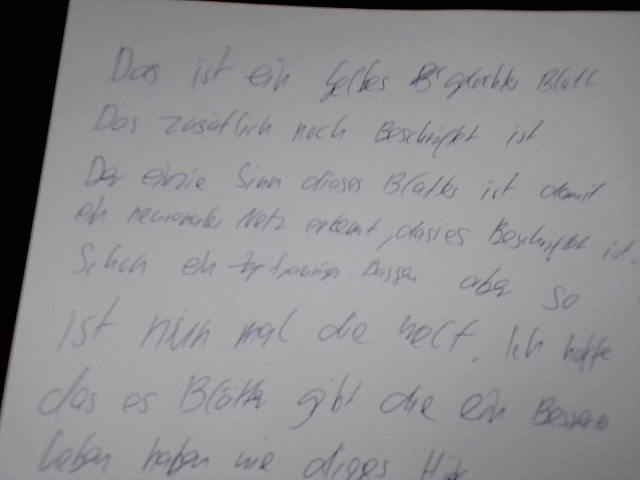 Das ist ein gelbes Blatt
Das zusätlich noch Beschriftet ist
Der einzie Sinn dieses Blattes ist damit
ein neuronales Netz erkennt, dass es Beschriftet ist.
Schon ein trauriges aber so
ist nun mal die welt. Ich hoffe
das es Blätter gibt die ein Besseres
leben haben wie dieses Hier